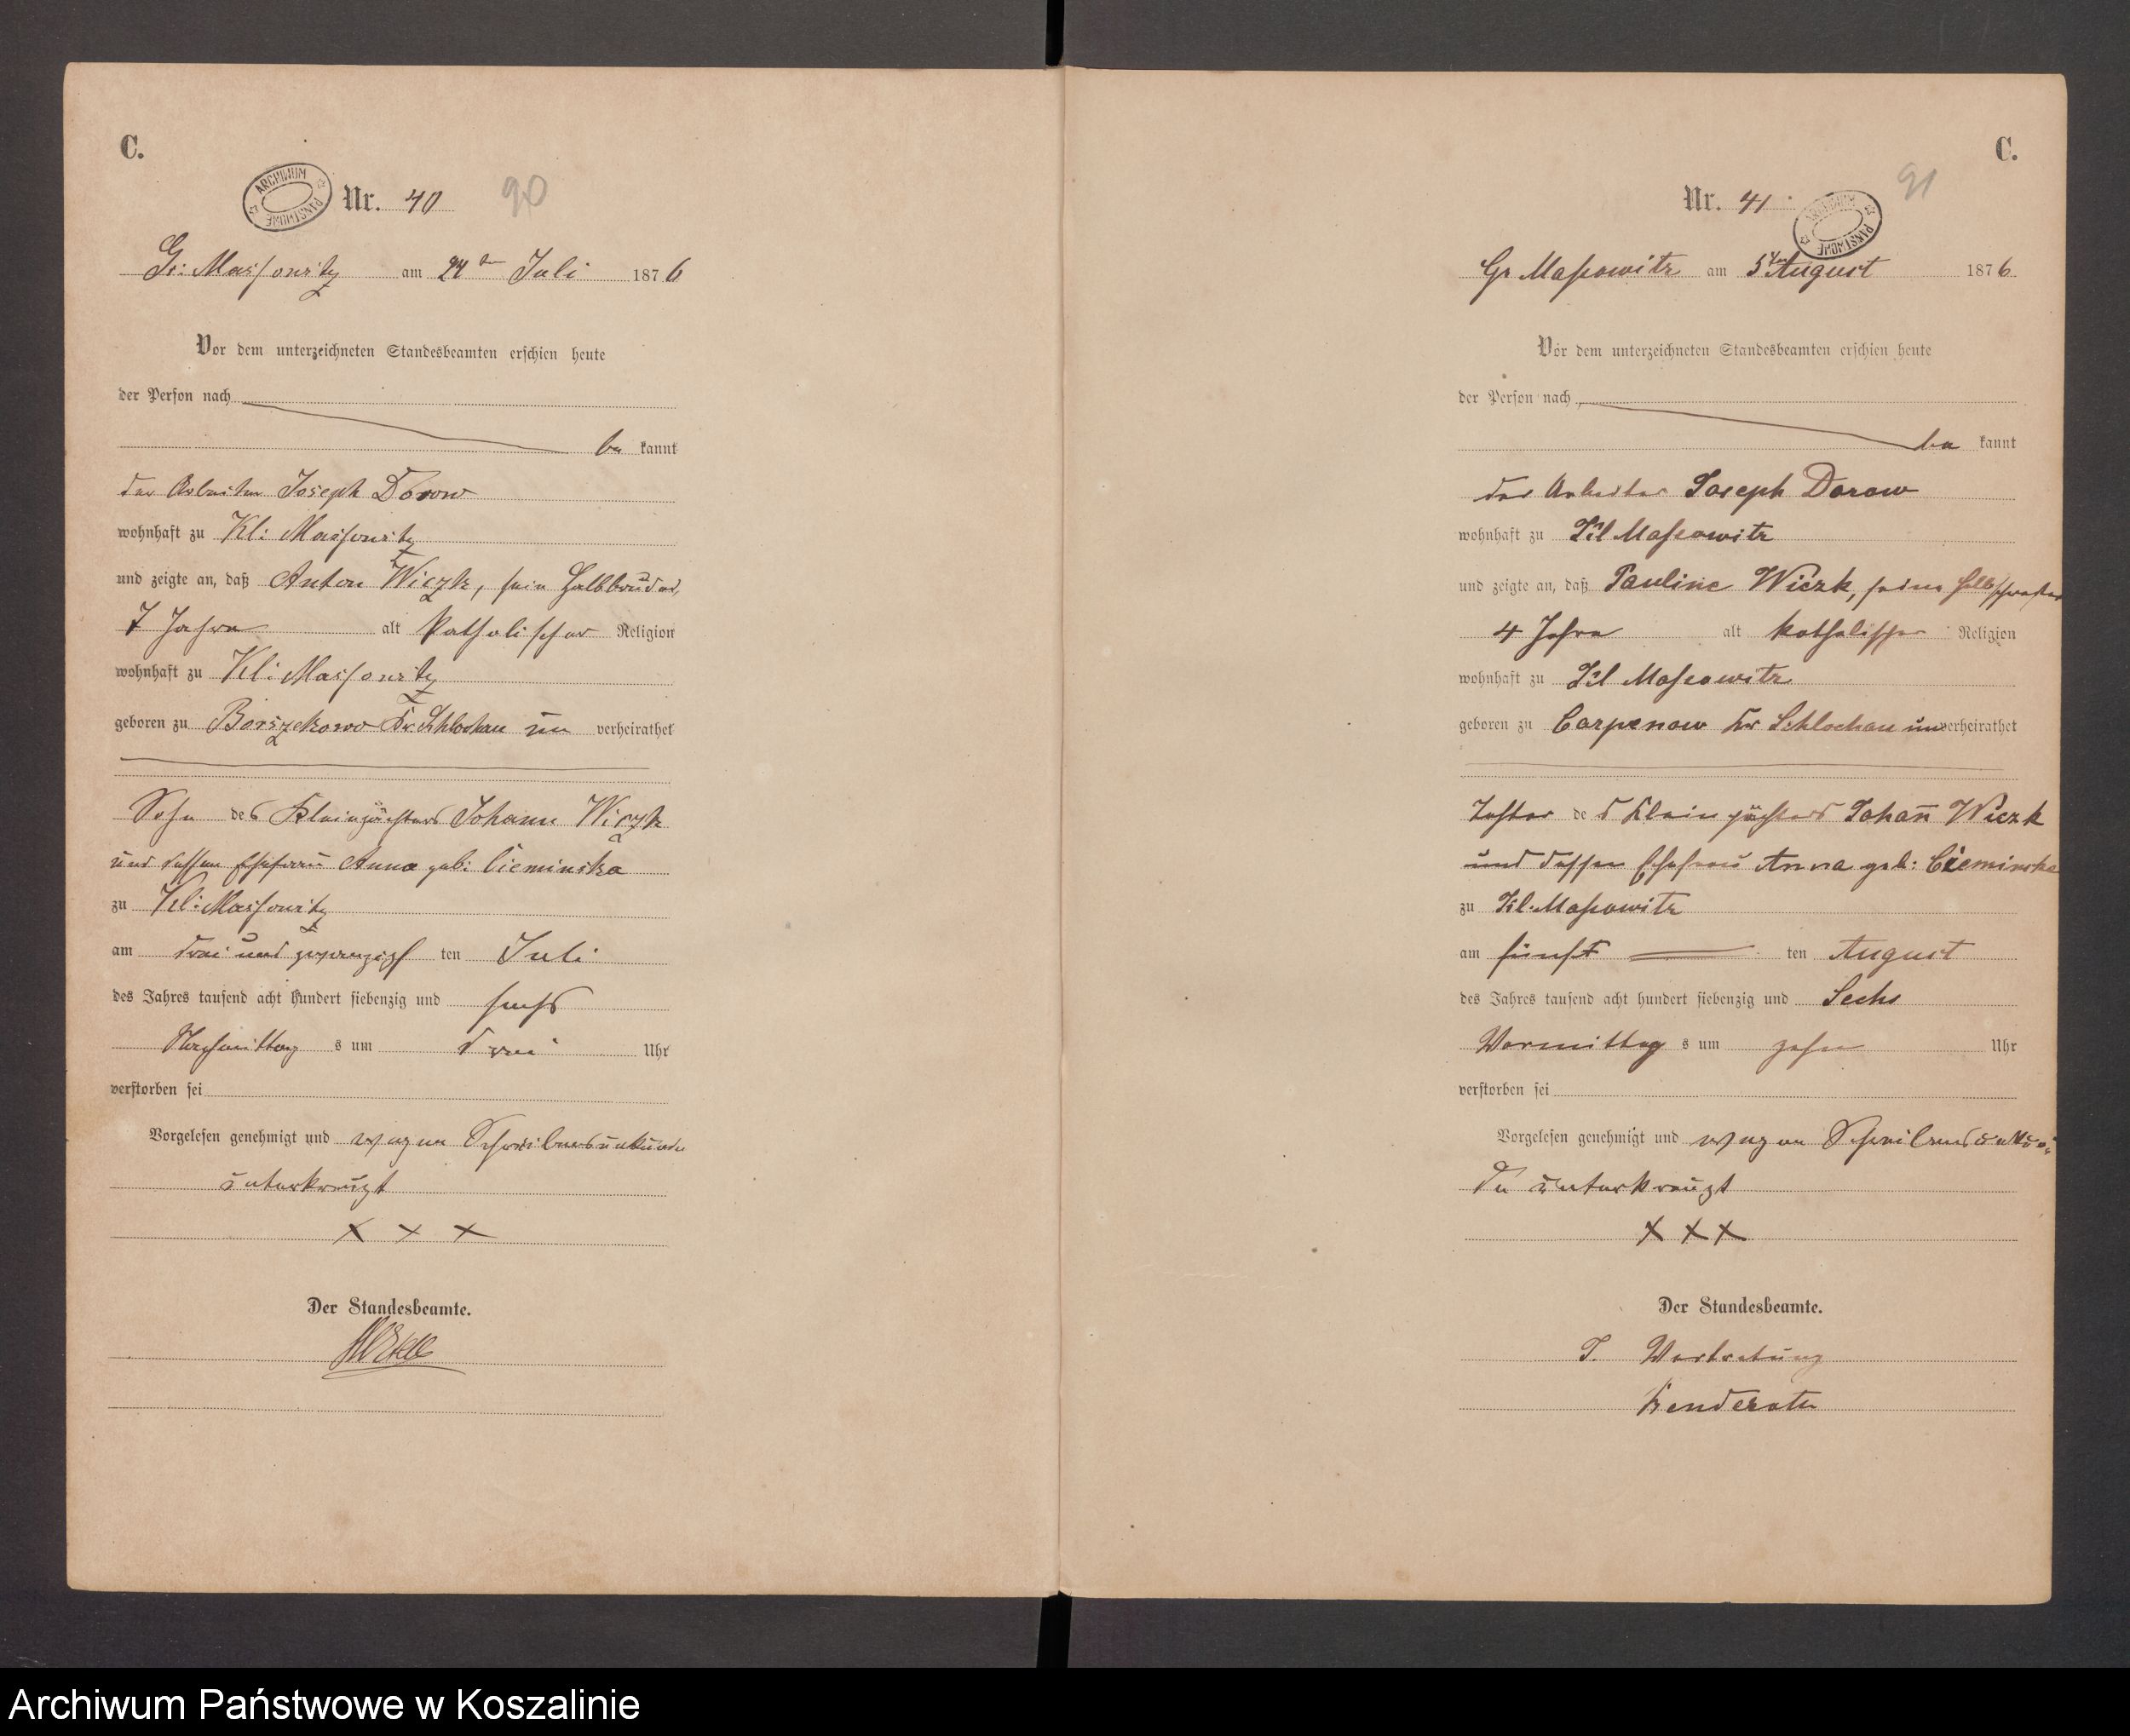 C.
ARCHIWUM PAŃSTWOWE
Nr. 40
90
Gr: Massowitz am 24ten Juli 1876
Vor dem unterzeichneten Standesbeamten erschien heute
der Person nach
be kannt
der Arbeiter Joseph Dorow
wohnhaft zu Kl: Massowitz
und zeigte an, daß Anton Wiczk, sein Halbbruder,
7 Jahre alt katholischer Religion
wohnhaft zu Kl: Massowitz
geboren zu Borszekowo Kr. Schlochau un verheirathet
Sohn des Kleinpächters Johann Wiczk
und dessen Ehefrau Anna geb: Cieminska
zu Kl: Massowitz
am drei und zwanzigs ten Juli
des Jahres tausend acht hundert siebenzig und sechs
Nachmittag s um drei Uhr
verstorben sei
Vorgelesen genehmigt und wegen Schreibensunkunde
unterkreuzt
x x x
Der Standesbeamte.
C.
91
Nr. 41
ARCHIWUM PAŃSTWOWE
Gr Massowitz am 5ten August 1876
Vor dem unterzeichneten Standesbeamten erschien heute
der Person nach
be kannt
der Arbeiter Joseph Dorow
wohnhaft zu Kl Massowitz
und zeigte an, daß Pauline Wiczk, seine Halbschwester
4 Jahre alt katholischer Religion
wohnhaft zu Kl Massowitz
geboren zu Carpenow Kr Schlochau unverheirathet
Tochter de s Kleinpächters Johann Wiczk
und dessen Ehefrau Anna geb: Cieminska
zu Kl. Massowitz
am fünf ten August
des Jahres tausend acht hundert siebenzig und Sechs
Vormittag s um zehn Uhr
verstorben sei
Vorgelesen genehmigt und wegen Schreibensunkun-
de unterkreuzt
x x x
Der Standesbeamte.
I. Vertretung
Archiwum Państwowe w Koszalinie